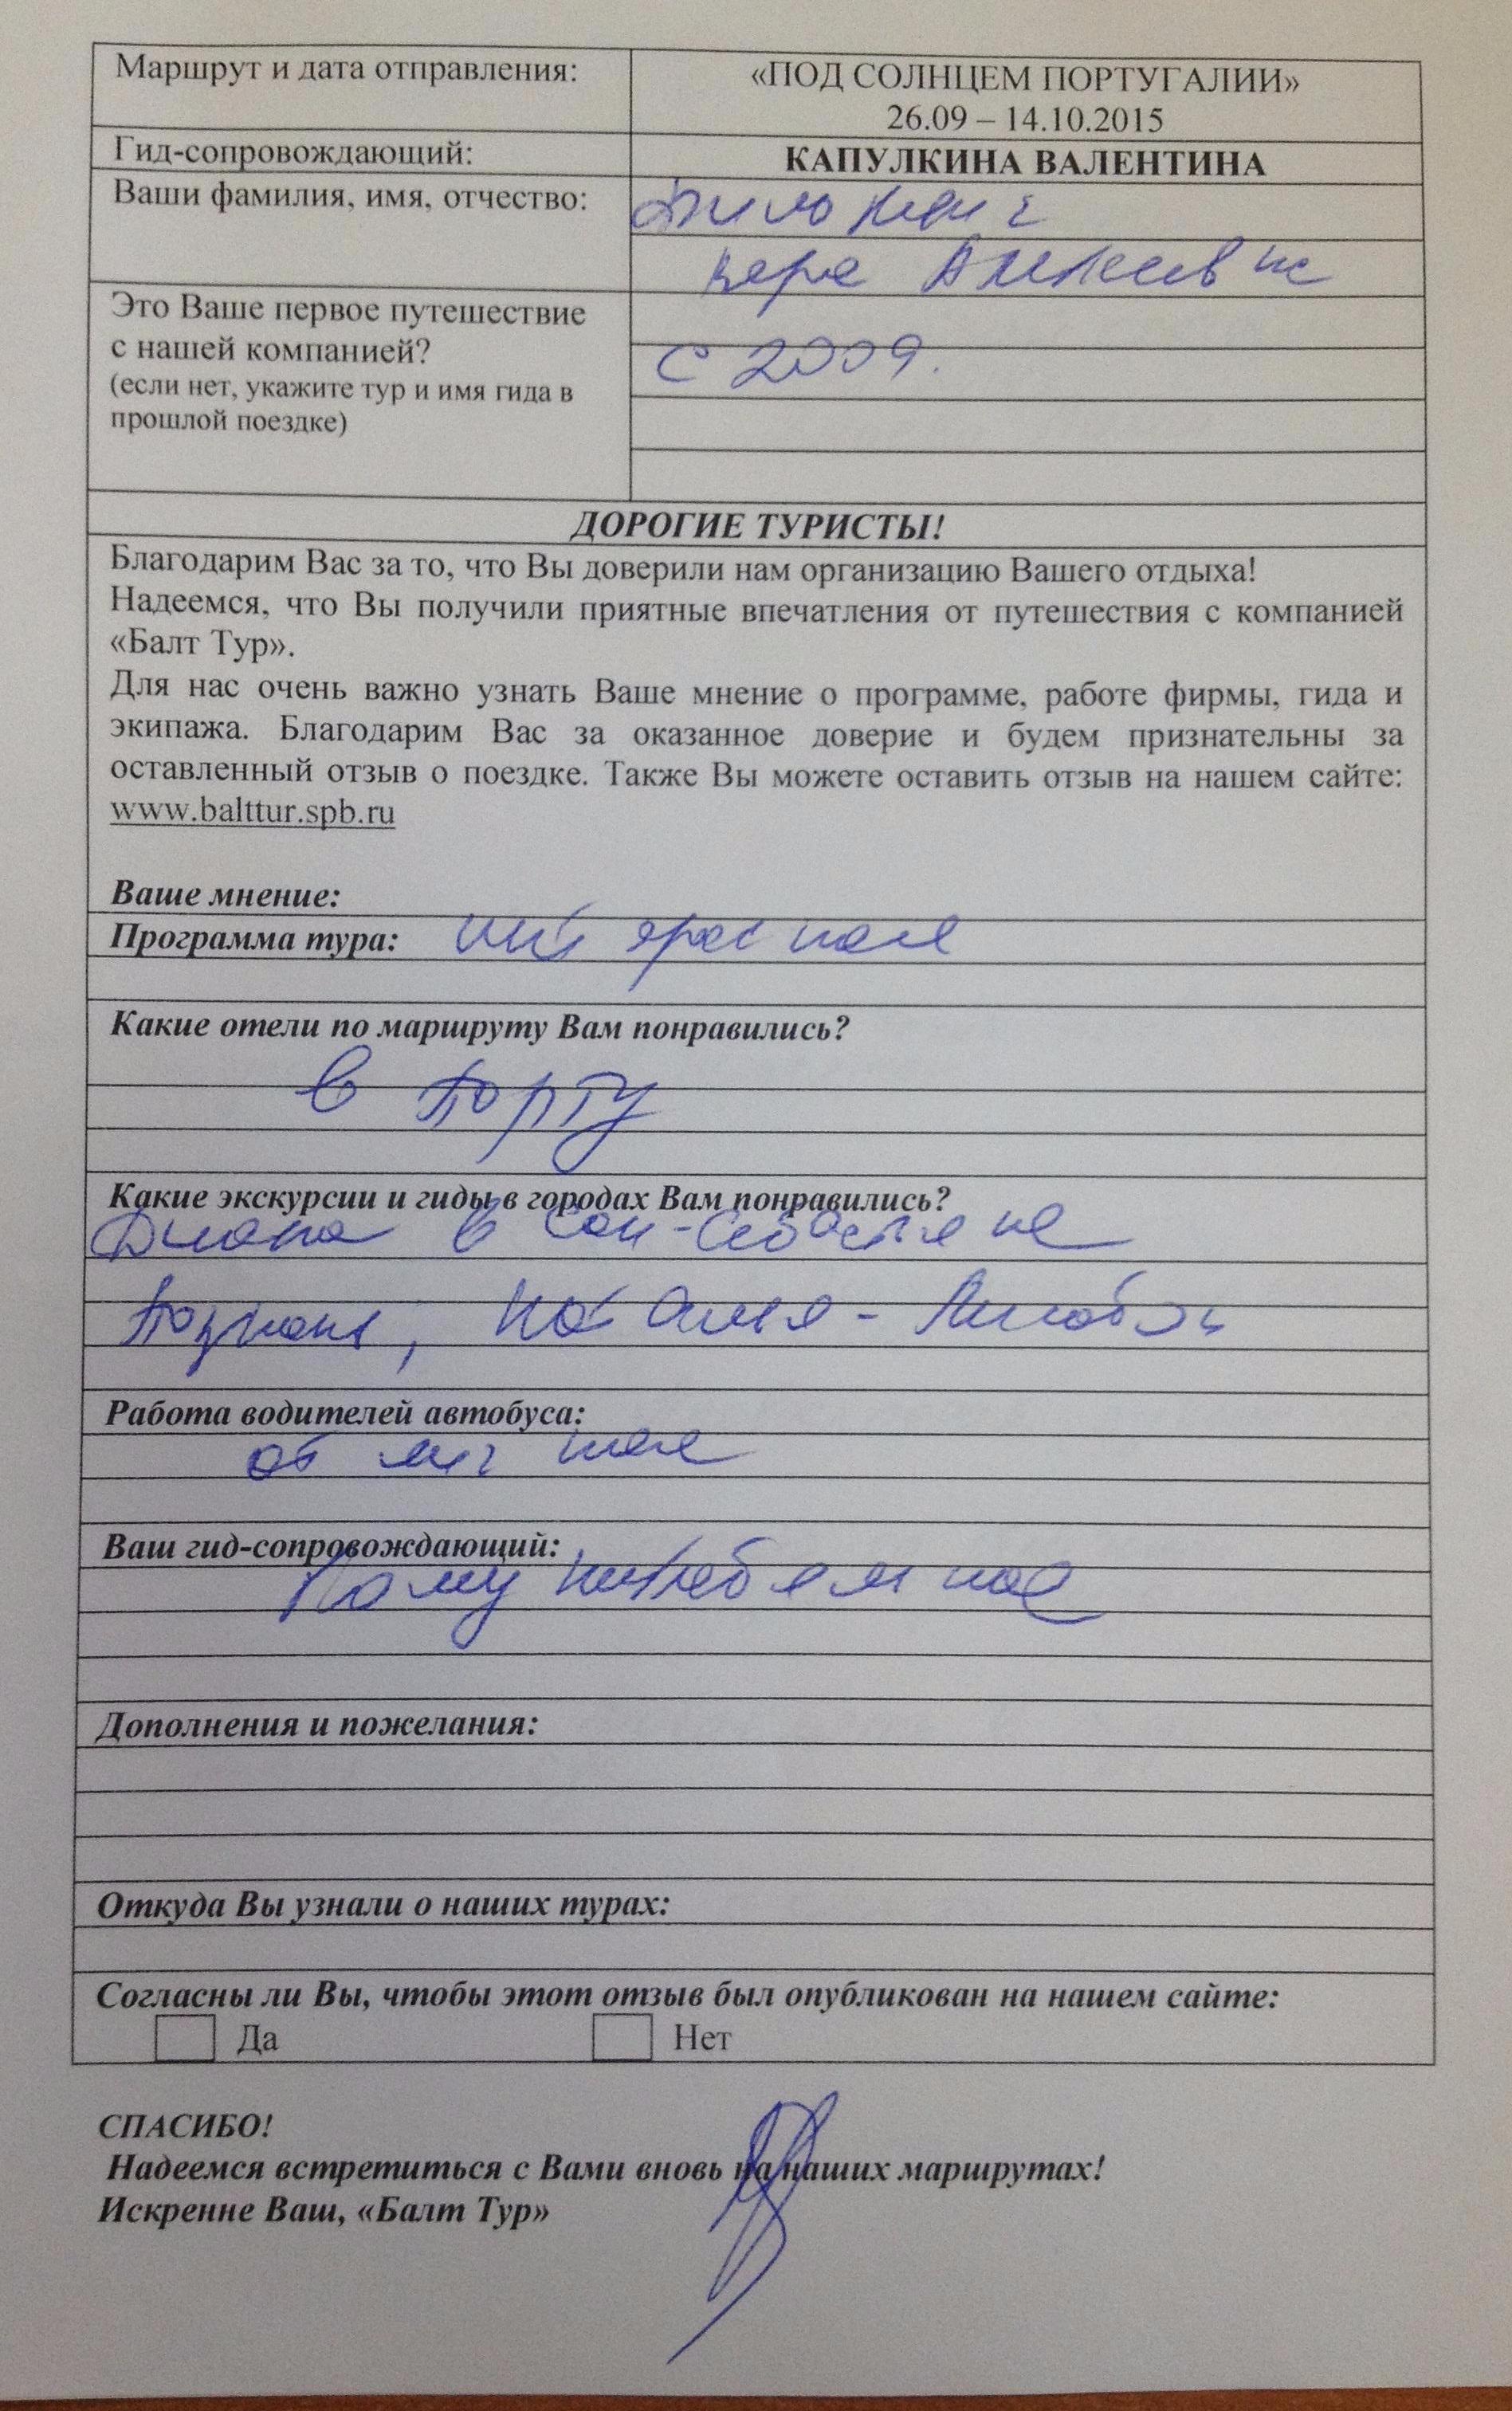 Маршрут и дата отправления:
«ПОД СОЛНЦЕМ ПОРТУГАЛИИ»
26.09 – 14.10.2015
Гид-сопровождающий:
КАПУЛКИНА ВАЛЕНТИНА
Ваши фамилия, имя, отчество:
Вера
Это Ваше первое путешествие
с нашей компанией?
(если нет, укажите тур и имя гида в
прошлой поездке)
с 2009.
ДОРОГИЕ ТУРИСТЫ!
Благодарим Вас за то, что Вы доверили нам организацию Вашего отдыха!
Надеемся, что Вы получили приятные впечатления от путешествия с компанией
«Балт Тур».
Для нас очень важно узнать Ваше мнение о программе, работе фирмы, гида и
экипажа. Благодарим Вас за оказанное доверие и будем признательны за
оставленный отзыв о поездке. Также Вы можете оставить отзыв на нашем сайте:
www.balttur.spb.ru
Ваше мнение:
Программа тура: интересная
Какие отели по маршруту Вам понравились?
в Порту
Какие экскурсии и гиды в городах Вам понравились?
Диана в Сан-Себастьяне
Наталья - Лисабон
Работа водителей автобуса:
отличная
Ваш гид-сопровождающий:
Дополнения и пожелания:
Откуда Вы узнали о наших турах:
Согласны ли Вы, чтобы этот отзыв был опубликован на нашем сайте:
Да Нет
СПАСИБО!
Надеемся встретиться с Вами вновь на наших маршрутах!
Искренне Ваш, «Балт Тур»